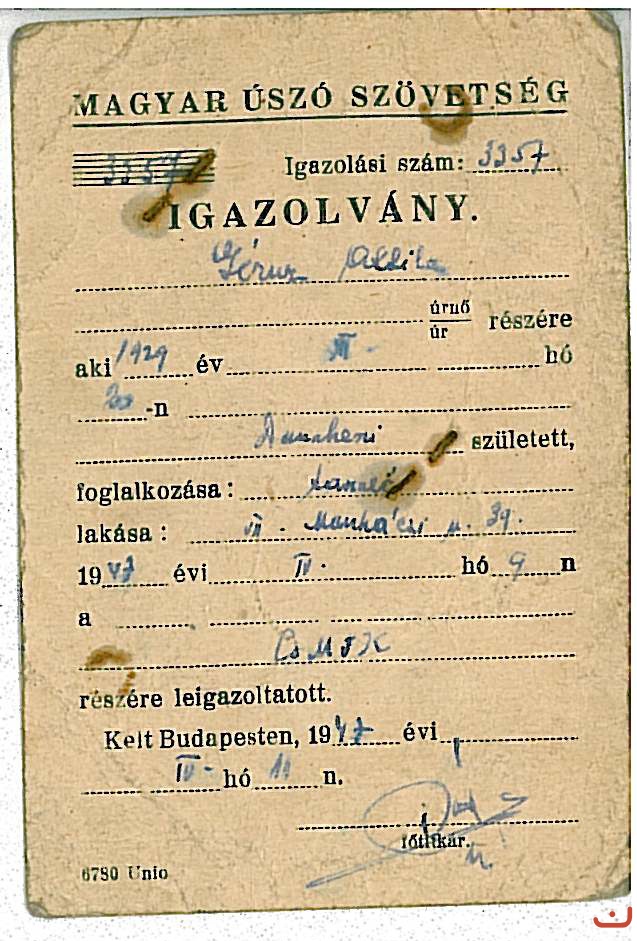 MAGYAR ÚSZÓ SZÖVETSÉG
3357
Igazolási szám: 3357
IGAZOLVÁNY.
Attila
úrnő
úr részére
aki 1929 év hó
-n
született,
foglalkozása: tanuló
lakása: VII. Munkácsi u. 39.
1947 évi IV. hó 9 n
a
Cs M T K
részére leigazoltatott.
Kelt Budapesten, 1947 évi
IV. hó 11 n.
főtitkár.
6780 Unio